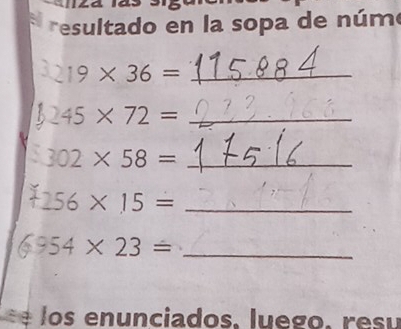 resultado en la sopa de núme
3219 × 36 = 115.884
3245 × 72 =
5302 × 58 = 17516
7256 × 15 =
6954 × 23 =
los enunciados, luego, resu